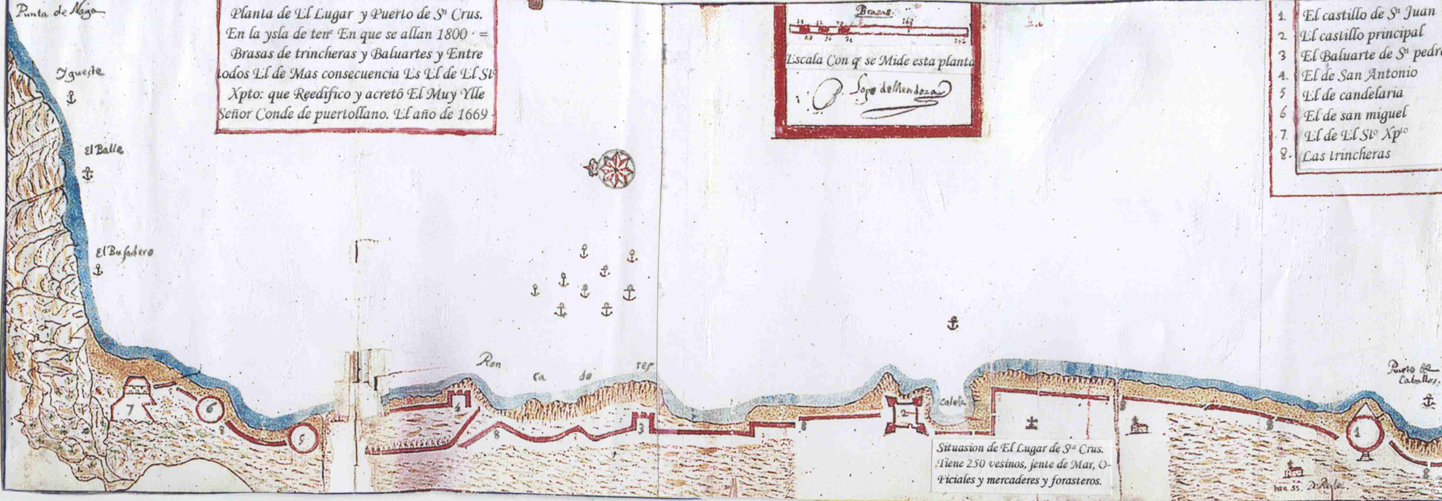 Punta de Naga
Ygueste
El Balle
El Bufadero
Planta de El Lugar y Puerto de Sᵃ Crus.
En la ysla de tenᵉ En que se allan 1800 · =
Brasas de trincheras y Baluartes y Entre
todos El de Mas consecuencia Es El de El Stº
Xpto: que Reedifico y acretó El Muy Ylle
Señor Conde de puertollano. El año de 1669
Brasas.
Escala Con qᵉ se Mide esta planta
Lope de Mendoza
1. El castillo de Sⁿ Juan
2 El castillo principal
3 El Baluarte de Sⁿ pedro
4. El de San Antonio
5 El de candelaria
6 El de san miguel
7. El de El Stº Xpᵗº
8. Las trincheras
Ron ca do res
caleta
Puerto de
Caballos.
7
6
8
5
4
8
3
8
2
8
8
1
8
Situasion de El Lugar de Sᵗᵃ Crus.
Tiene 250 vesinos, jente de Mar, O-
Ficiales y mercaderes y forasteros.